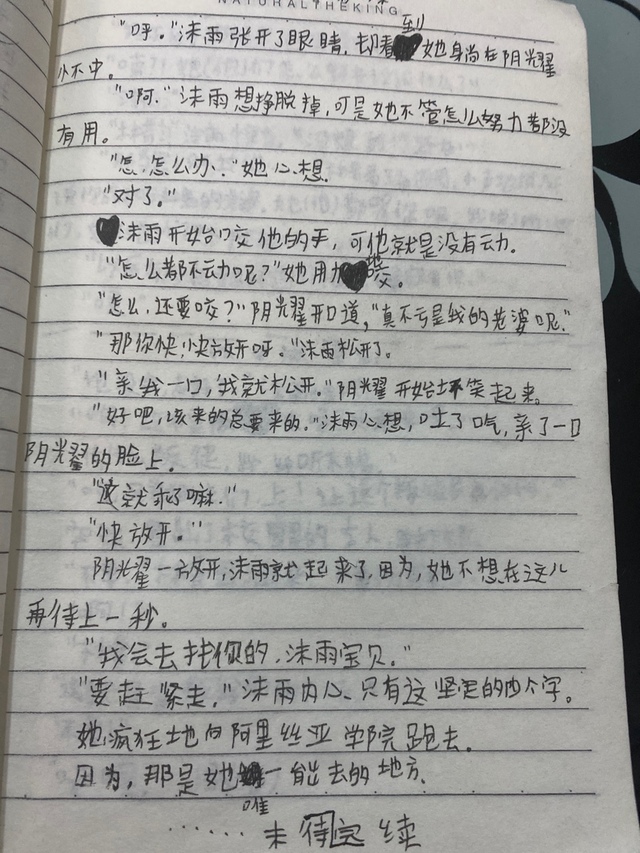 NATURALTHEKING
"呼。"沫雨张开了眼睛,却看到她身尚在阴光耀
怀中。
"啊."沫雨想挣脱掉,可是她不管怎么努力都没
有用。
"怎.怎么办.."她心想.
"对了。"
沫雨开始咬他的手,可他就是没有动.
"怎么都不动呢?"她用力地咬。
"怎么.还要咬?"阴光耀开口道,"真不亏是我的老婆呢."
"那你快,快放开呀。"沫雨松开了。
"亲我一口,我就松开."阴光耀开始坏笑起来。
"好吧,该来的总要来的."沫雨心想,吐了口气,亲了一口
阴光耀的脸上.
"这就乖了嘛."
"快放开."
阴光耀一放开,沫雨就起来了.因为,她不想在这儿
再待上一秒。
"我会去找你的,沫雨宝贝."
"要赶紧走."沫雨内心.只有这坚定的四个字。
她疯狂地向阿里丝亚学院跑去.
因为,那是她唯一能去的地方.
......未待完续